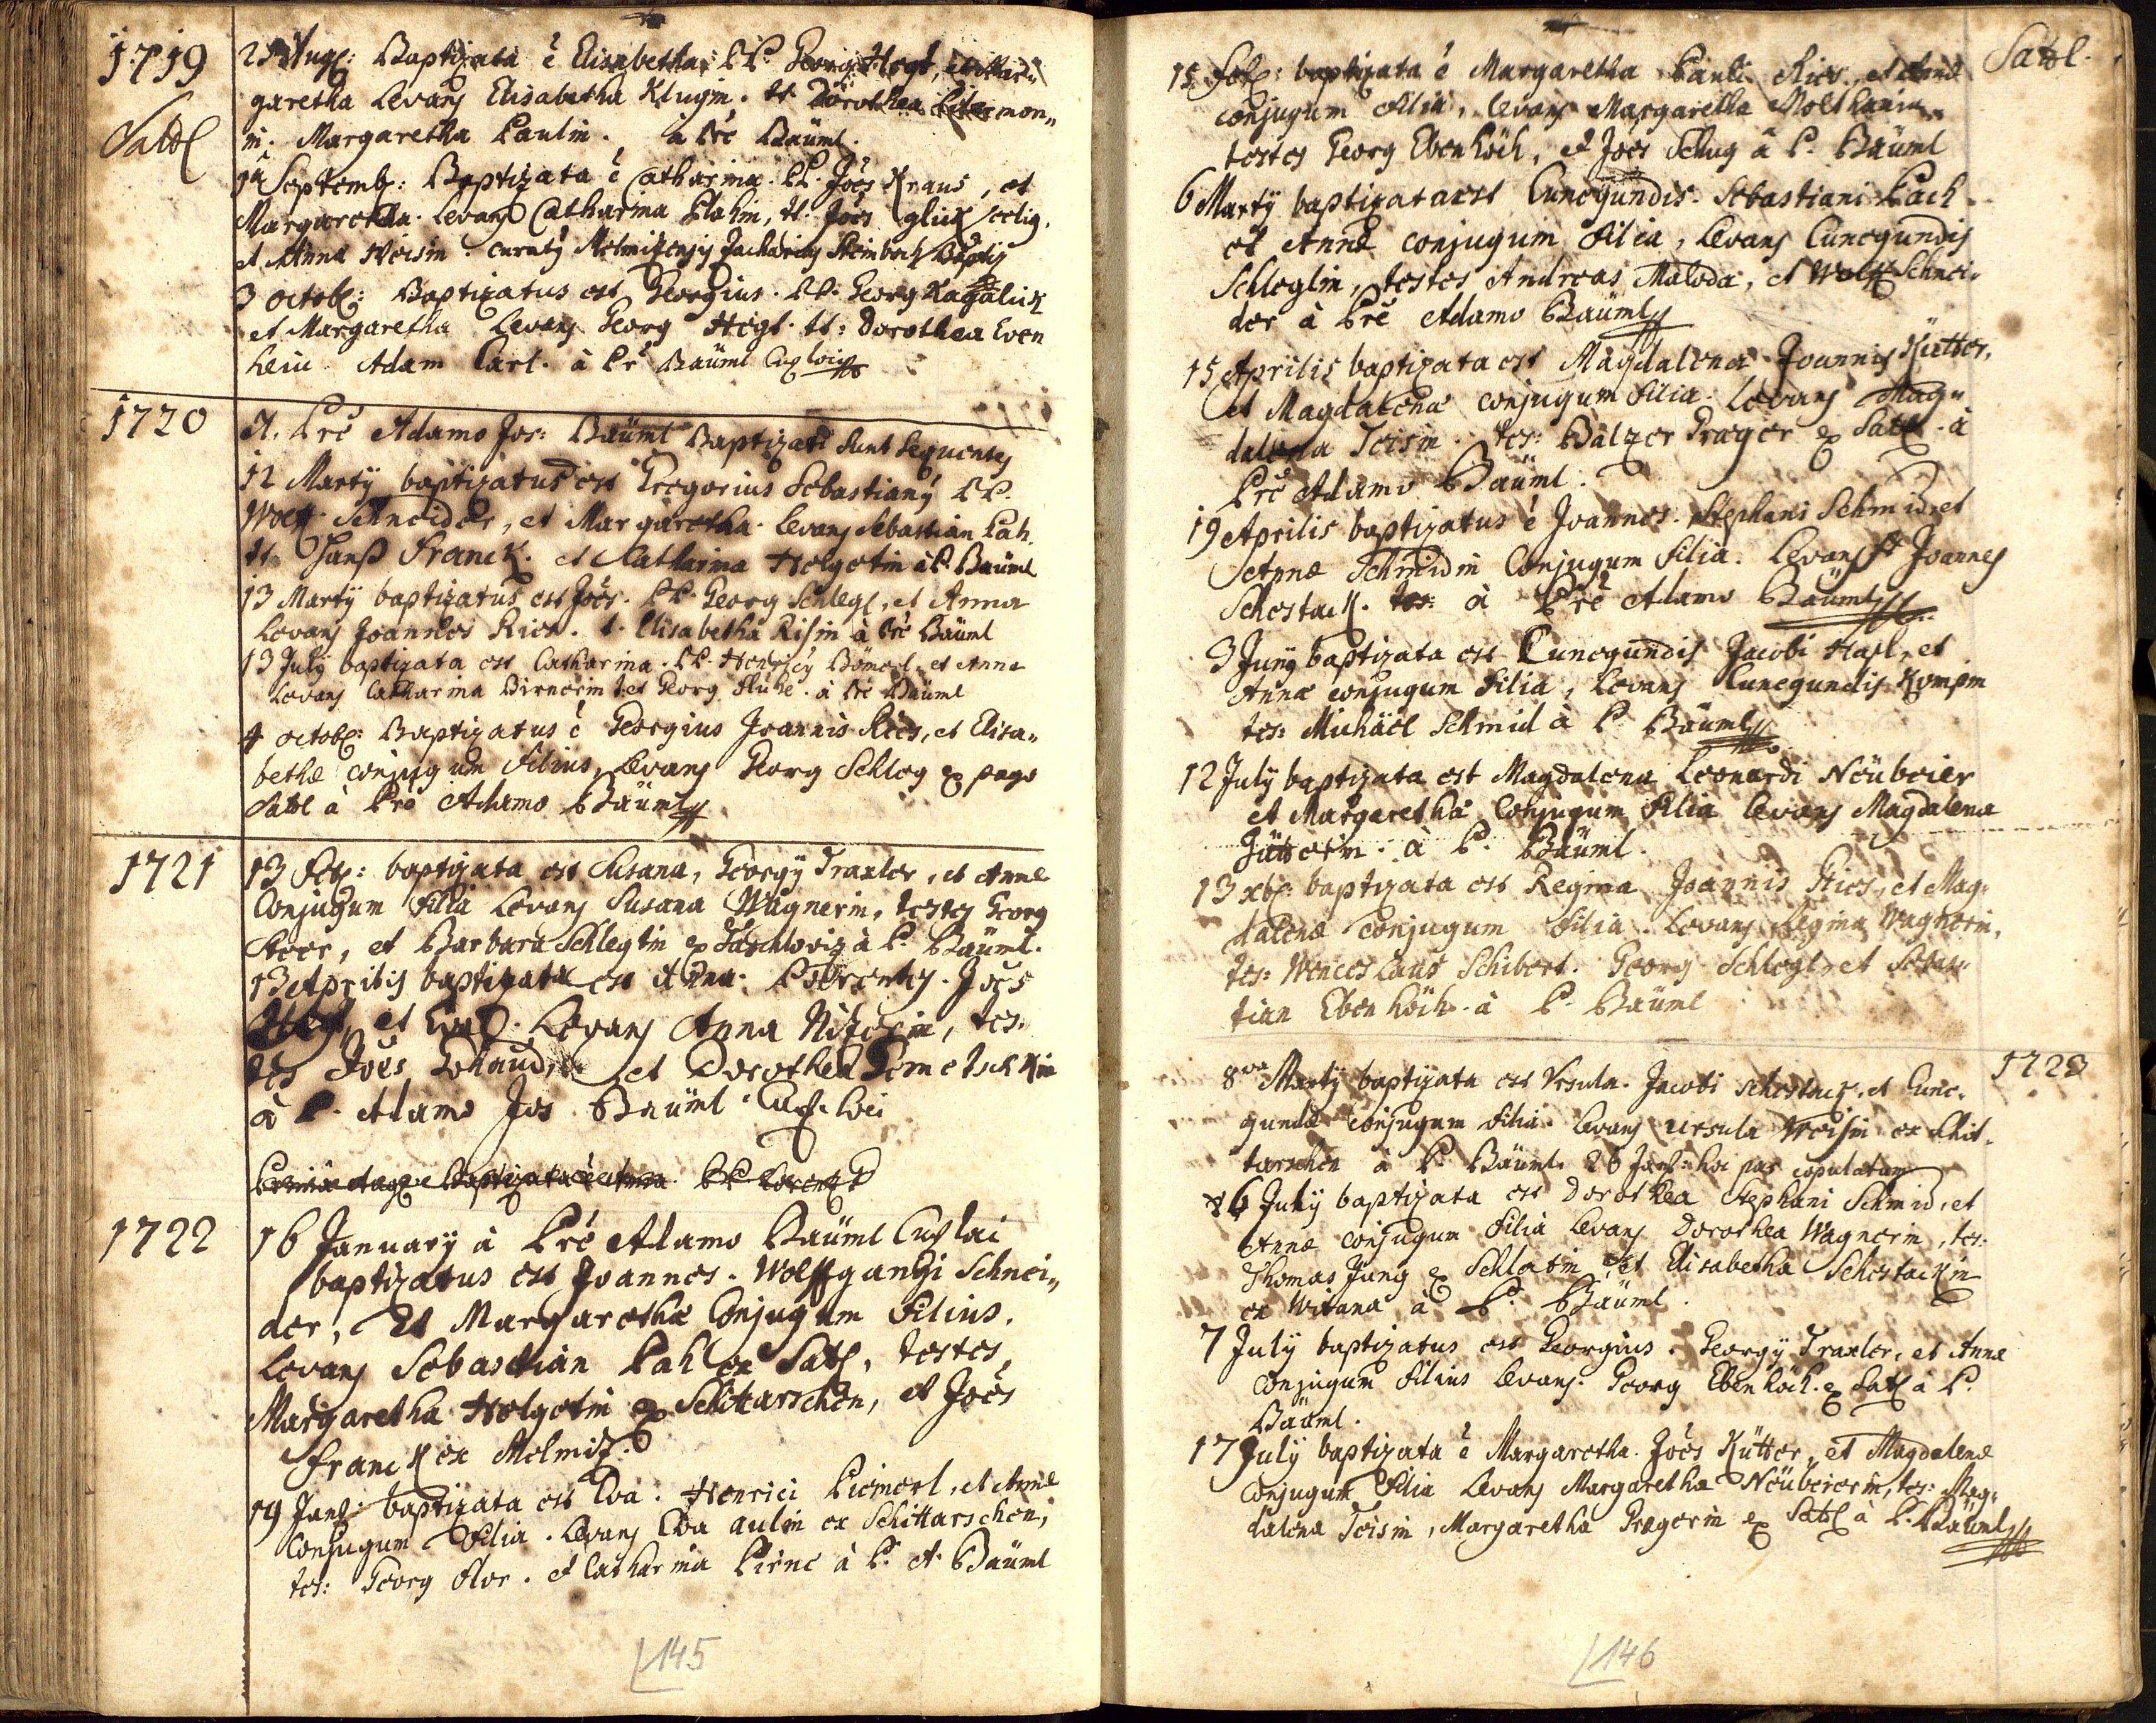 1719
Sattl
23 Aug: Baptizata ē Elisabetha PP. Georg Hegl, et Mar„
garetha Levans Elisabetha Klugin. tt Dorothea
in. Margaretha Paulin. à Pre Bäuml.
Septemb: Baptizata ē Catharina. PP. Joes Kraus, et
Margaretha. Levans Catharina Plahin, tt: Joes
et Anna Weisin. Curatus Melmizensis Zacharias Steinbach Baptiz
3 octob: Baptizatus est Georgius. PP. Georg
et Margaretha Levans Georg Hegl. tt: Dorothea Even
hein Adam Carl. à Pr Bäuml
1720
A. Pre Adamo Jos: Bäuml Baptizati sunt sequentes
12 Martÿ baptizatus est Gregorius Sebastianÿ PP.
Wolff Schneider, et Margaretha. Levans Sebastian Pah.
tt. Hanß Franck. et Catharina Holgotin à P. Bäuml
13 Martÿ baptizatus est Joēs. PP. Georg Schlegl, et Anna
Levans Joannes Ries. t. Elisabetha Risin à Pre Bäuml
13 Julÿ baptizata est Catharina. PP. Henricÿ Bömerl. et Anna
Levans Catharina Birnerin t: et Georg Fluhe. à Pre Bäuml
4 octob: Baptizatus ē Georgius Joannis Ries, et Elisa„
bethæ conjugum filius, Levans Georg Schleg ex pago
Sattl à Pre Adamo Bäuml
1721
13 Feb: baptizata est Susana, Georgÿ Traxler, et Annæ
Conjugum filia Levans Susana Wagnerin, testes Georg
Steer, et Barbara Schleglin ex Taschlowiz à P. Bäuml.
13 Aprilis baptizata est Anna. Parentes. Joēs
et Eva. Levans Anna Nitzerin, tes„
tes Joēs et Dorothea
à P. Adamo Jos Bäuml
Baptizata ē Anna. PP Lorentz
1722
16 Januarÿ à Pre Adamo Bäuml
baptizatus est Joannes. Wolffgangi Schnei„
der, Et Margarethæ Conjugum filius.
Levans Sebastian Pah ex Satl, testes
Margaretha Holgotin ex Schittarschen, et Joēs
Franck ex Melmiz.
19 Jan: baptizata est Eva. Henrici Piemerl, et Annæ
Conjugum Filia. Levans Eva aulin ex Schittarschen,
tes: Georg Flor. et Catharina Pirne à P. A. Bäuml
145
Sattl.
15 Feb: baptizata ē Margaretha Pauli Ries, et Annæ
conjugum filia, levans Margaretha
testes Georg Ebenhöch, et Joes Schug à P. Bäuml
6 Martÿ baptizata est Cunegundis. Sebastiani Pach
et Annæ conjugum filia, Levans Cunegundis
Schleglin, testes Andreas Maloda, et Wolff Schnei„
der à Pre Adamo Bäuml
15 Aprilis baptizata est Magdalena Joannis Kütter,
et Magdalenæ conjugum filia. Levans Mag„
dalena Teisin. tes: Balzer Prager ex Satl. à
Pre Adamo Bäuml.
19 Aprilis baptizatus ē Joannes. Stephani Schmid et
Annæ Schmidin Conjugum filia. Levans Joannes
Schestack. tes: à Pre Adamo Bäuml
3 Junÿ baptizata est Cunegundis Jacobi Hasl, et
Annæ conjugum filia, Levans Cunegundis
tes: Michäel Schmid à P. Bäuml
12 Julÿ baptizata est Magdalena Leonardi Neübeier
et Margaretha Conjugum filia levans Magdalena
Jütterin. à P. Bäuml.
13 xb: baptizata est Regina Joannis Ries, et Mag„
dalenæ Conjugum filia. Levans Regina Wagnerin,
tes: Wenceslaus Schibert. Georg Schlegl, et Sebas„
tian Ebenhöch. à P. Bäuml
1723
8va Martÿ baptizata est Vrsula. Jacobi Schestack, et Cune„
gundæ Conjugum filia. Levans Ursula Weisin ex Schit„
tarschen à P. Bäuml. 26 Jan: hoc par copulatum
16 Julÿ baptizata est Dorothea Stephani Schmid, et
Annæ conjugum filia Levans Dorothea Wagnerin, tes:
Thomas Jung ex Schlatin et Elisabetha Schestackin
ex Witana à P. Bäuml.
7 Julÿ baptizatus est Georgius. Georgÿ Traxler, et Annæ
Conjugum filius Levans. Georg Ebenhöch. ex Satl à P.
Bäuml.
17 Julÿ baptizata ē Margaretha. Joēs Kütter, et Magdalenæ
Conjugum Filia Levans Margaretha Neüberin, tes: Mag„
dalena Teisin, Margaretha Pregerin ex Satl à P. Bäuml
146